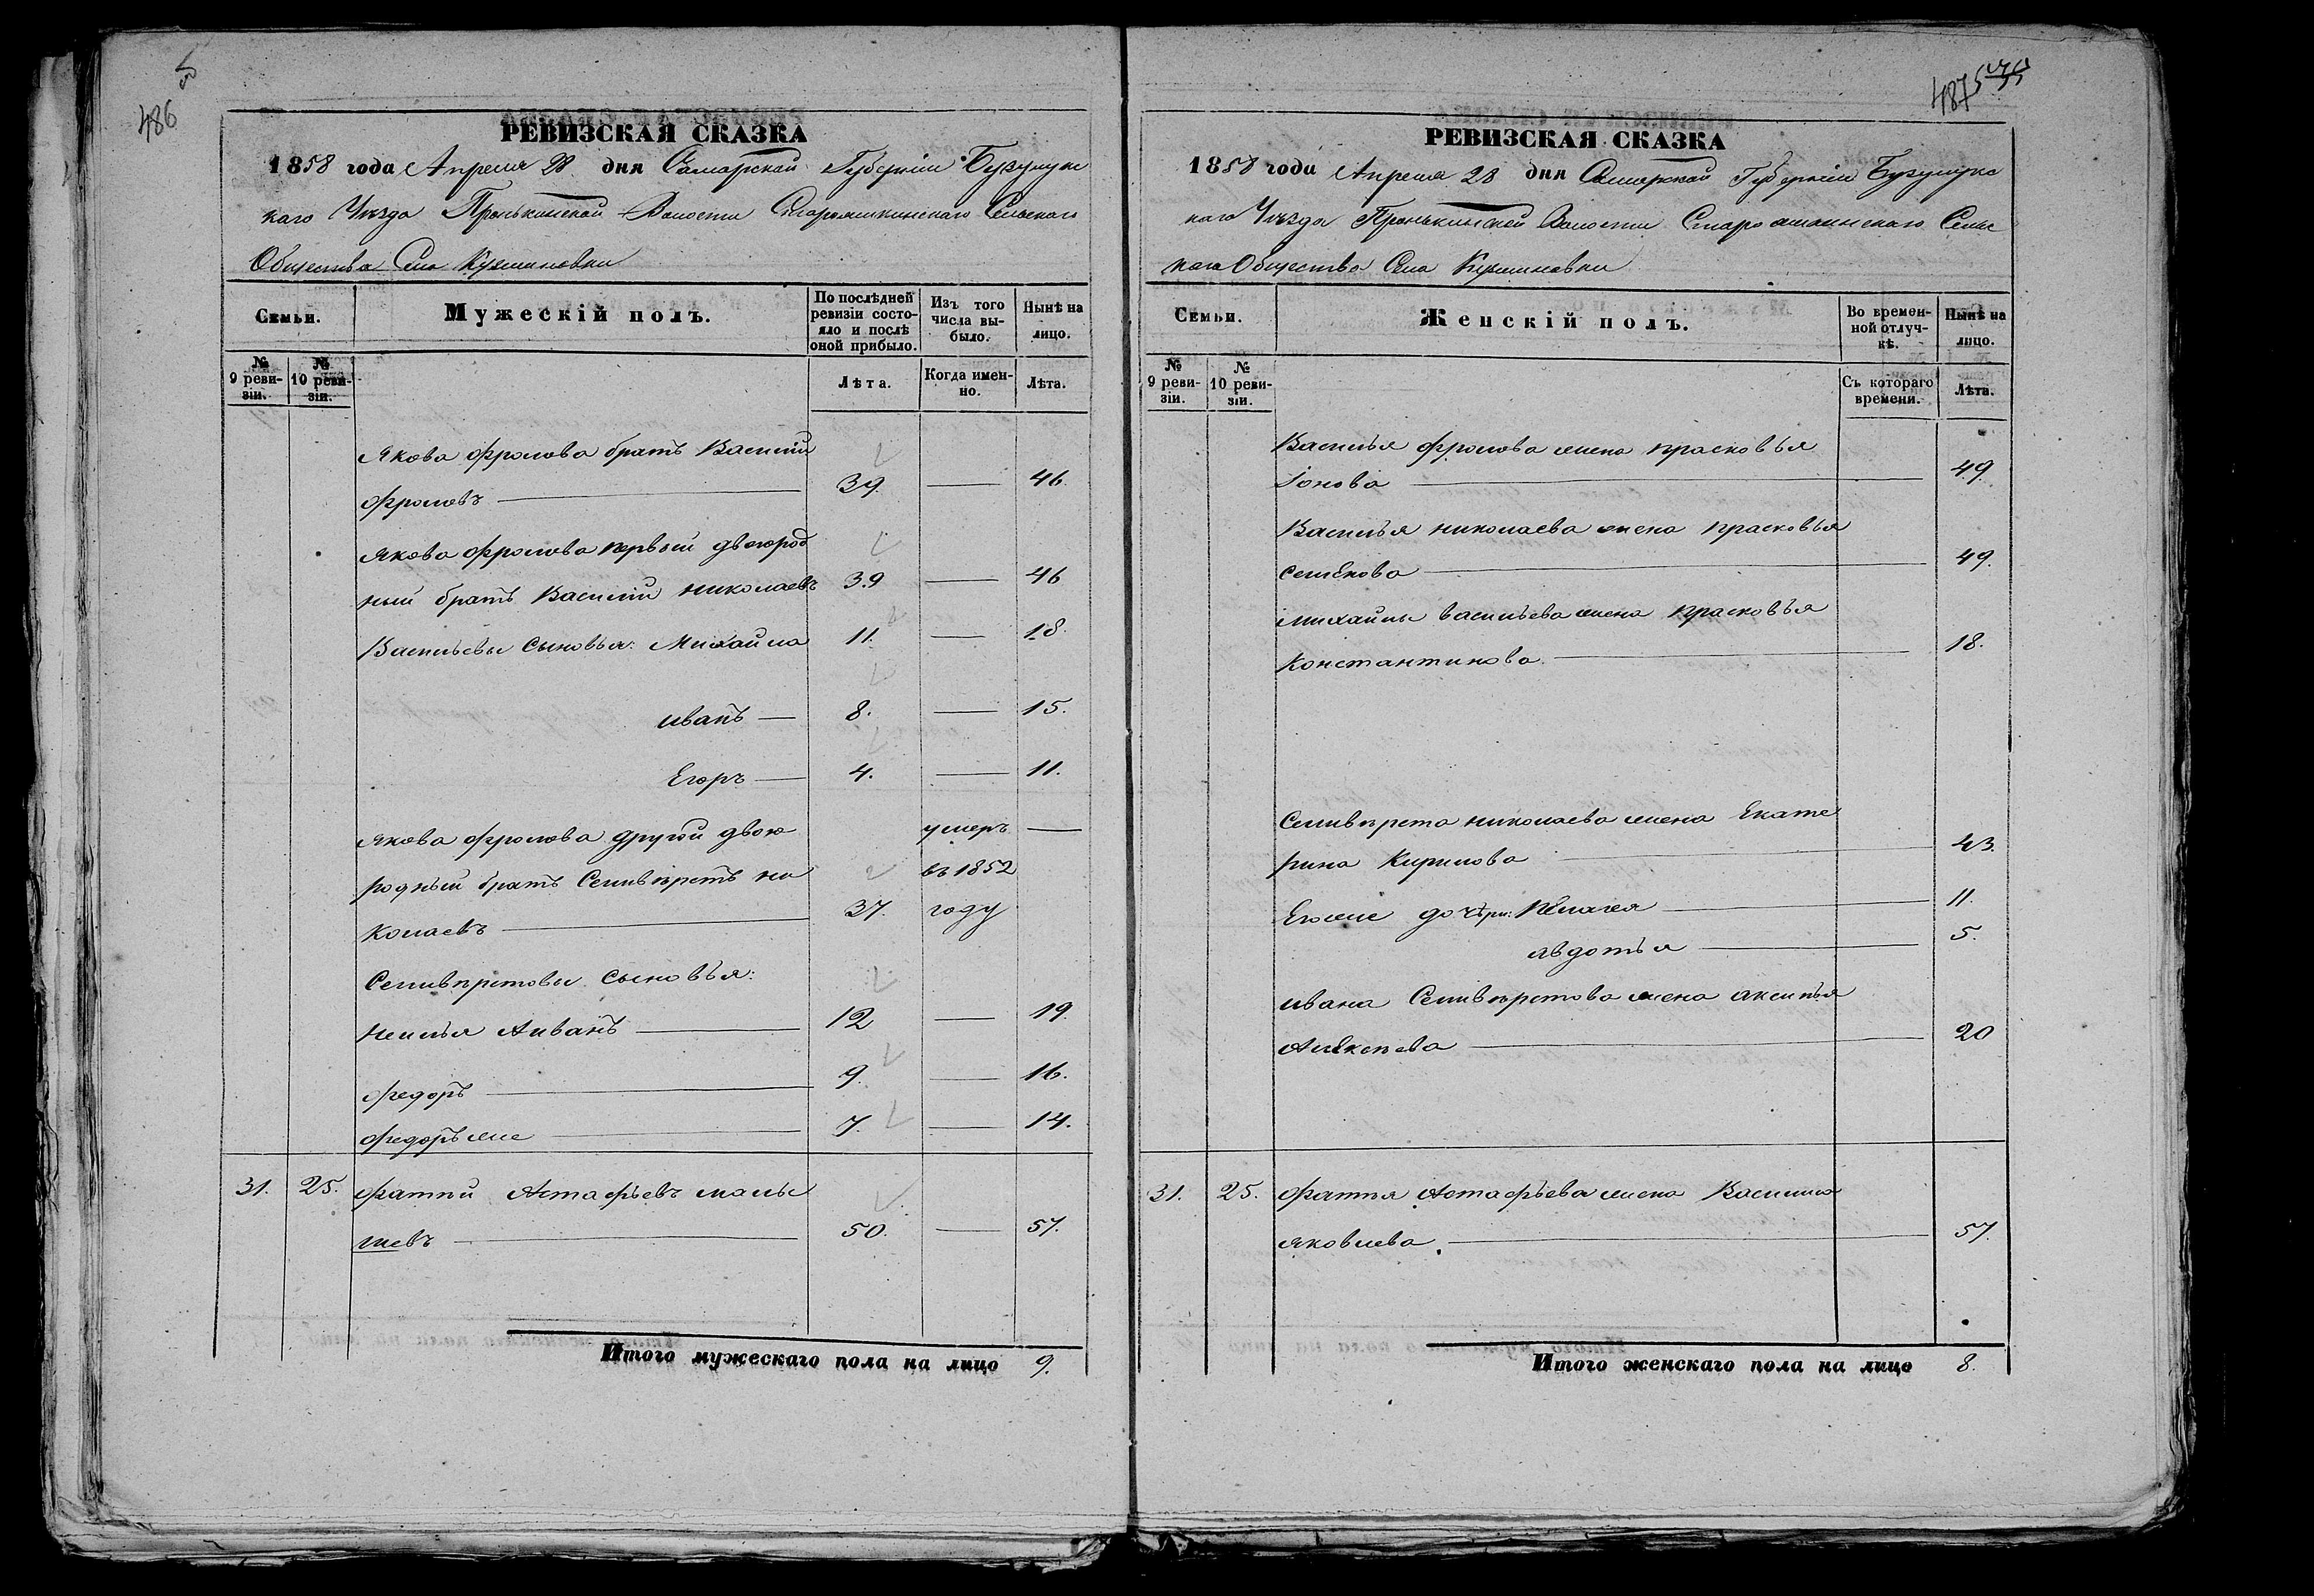 486
487
РЕВИЗСКАЯ СКАЗКА
1858 года Апреля 28 дня Самарской Губерніи Бузулукс
каго Уѣзда Пронькинской Волости Сельскаго
Общества Села Кузминовки
Семьи.
Мужескій полъ.
По послѣдней ревизіи состояло и послѣ оной прибыло.
Изъ того числа выбыло.
Нынѣ на лицо.
№ 9 ревизіи.
№ 10 ревизіи.
Лѣта.
Когда именно.
Лѣта.
Якова Фролова братъ Василій
Фроловъ — 39. — 46.
Якова Фролова первый двоюрод
ный братъ Василій Николаевъ 39 — 46
Васильевы сыновья: Михайла 11. — 18.
Иванъ — 8. — 15.
Егоръ — 4. — 11.
Якова Фролова другой двою умеръ —
родный братъ Селивѣрстъ Ни въ 1852
колаевъ — 37. году
сыновья:
Иванъ — 12 — 19
Федоръ — 9. — 16.
Федоръ же — 7. — 14.
31. 25. Астафьевъ Малы
шевъ — 50. — 57.
Итого мужескаго пола на лицо 9.
РЕВИЗСКАЯ СКАЗКА
1858 года Апреля 28 дня Самарской Губерніи Бузулукс
каго Уѣзда Пронькинской Волости Сельс
каго Общества Села Кузминовки
Семьи.
Женскій полъ.
Во временной отлучкѣ.
Нынѣ на лицо.
№ 9 ревизіи.
№ 10 ревизіи.
Съ котораго времени.
Лѣта.
Василья Фролова жена Прасковья
Іонова — 49.
Василья Николаева жена Прасковья
Семенова — 49.
Михайлы Васильева жена Прасковья
Константинова — 18.
Николаева жена Екате
рина Кирилова — 43.
Егоже дочѣри: Пелагея — 11.
Авдотья — 5.
Ивана жена Аксинья
Алексѣева — 20
31. 25. Астафьева жена Василиса
Яковлева — 57.
Итого женскаго пола на лице 8.